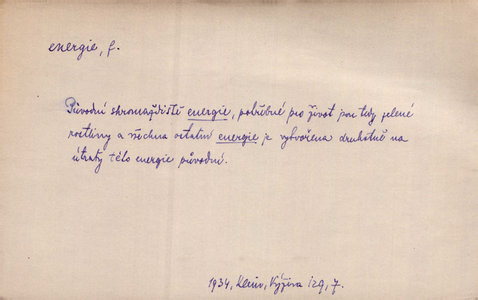 energie, f.
Původní shromaždiště energie, potřebné pro život jsou tedy zelené
rostliny a všechna ostatní energie je vytvořena druhotně na
útraty této energie původní.
1934, Klein, Výživa 129, 7.